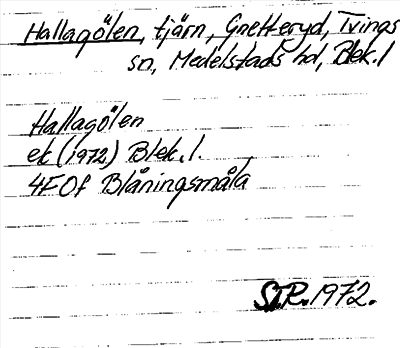 Hallagölen, tjärn, Gnetteryd, Tvings
sn, Medelstads hd, Blek. l
Hallagölen
ek (1972) Blek. l.
4F0f Blåningsmåla
STR. 1972.